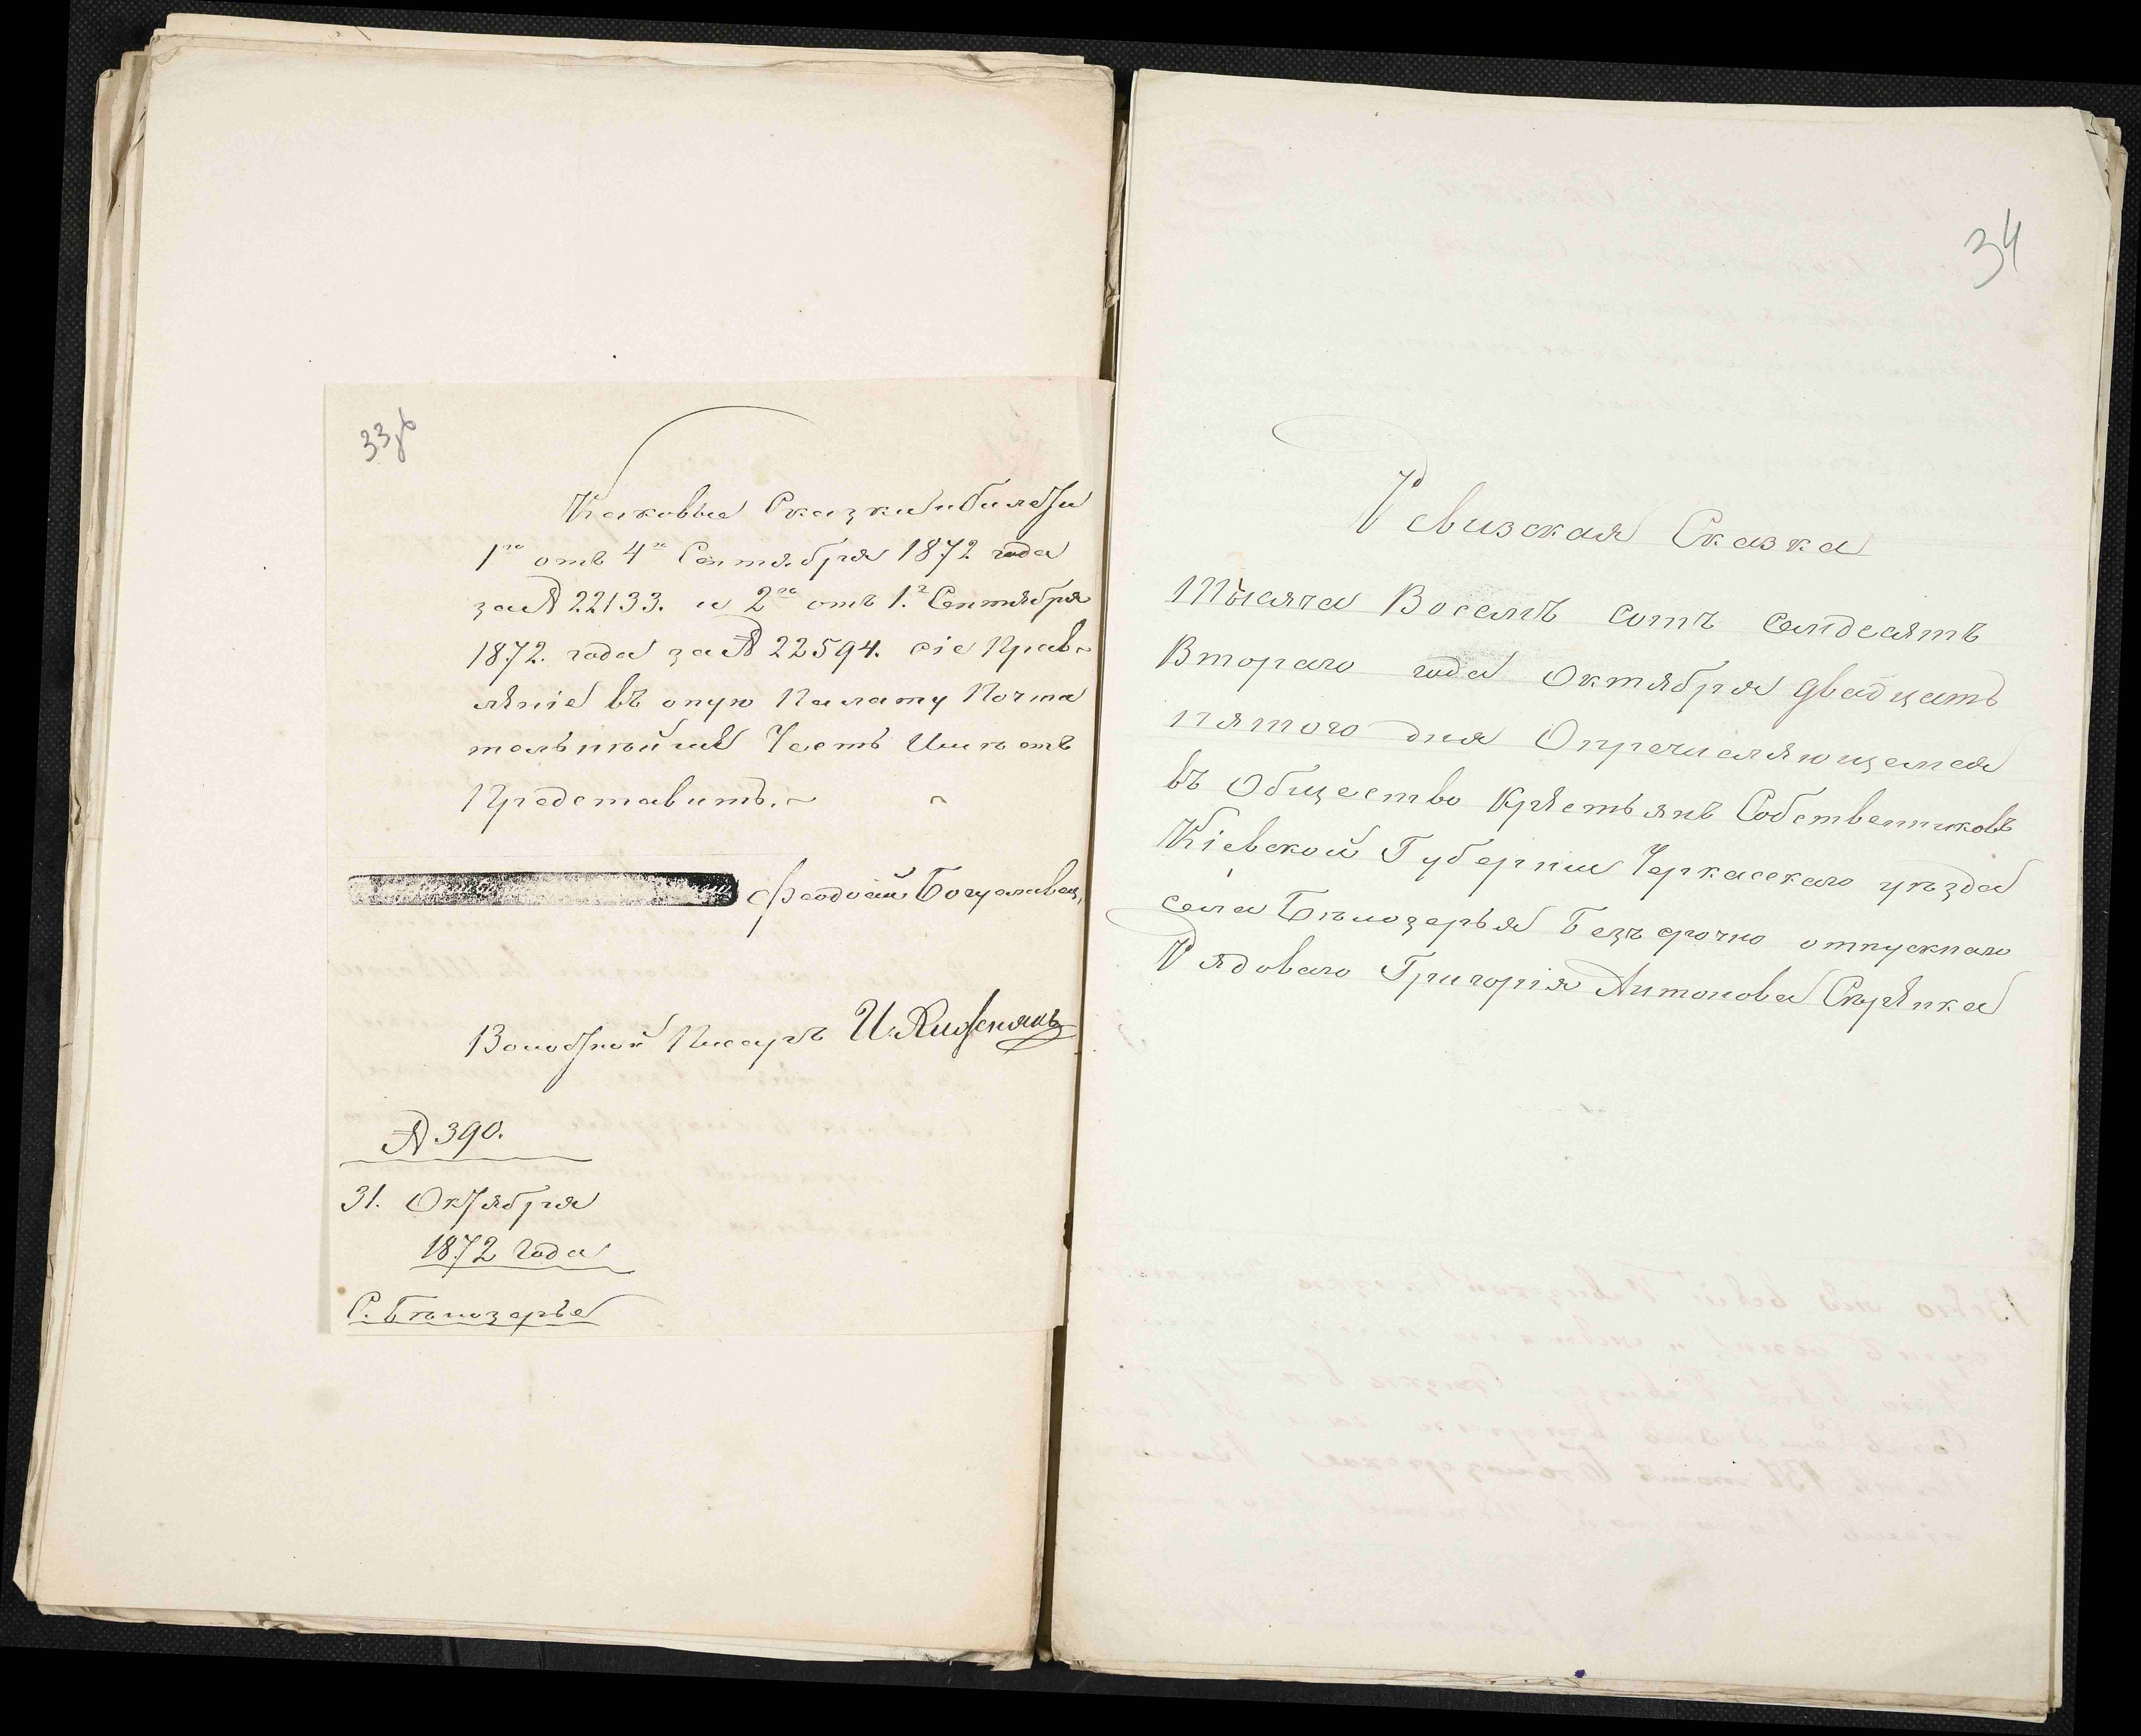 33об
Каковые Сказки и билеты
1й отъ 4го Сентября 1872 года
за № 22133. и 2й отъ 1.го Сентября
1872. года за № 22594. сіе Прав-
лѣніе въ оную Палату Почти
тельнѣйше Честь Имѣетъ
Представить.
Феодосій Богуславец,
Волостной Писарь
№ 390.
31. Октября
1872 года
С. Бѣлозерье
34
Ревизская Сказка
Тысяча Восемъ сотъ Семдесятъ
Втораго года Октября двадцать
пятого дня О причисляющемся
въ Общество Крѣстьянъ Собственниковъ
Кіевской Губерніи Черкаскаго уѣзда
села Бѣлозерья Безъ срочно отпускнаго
Рядоваго Григорія Антонова